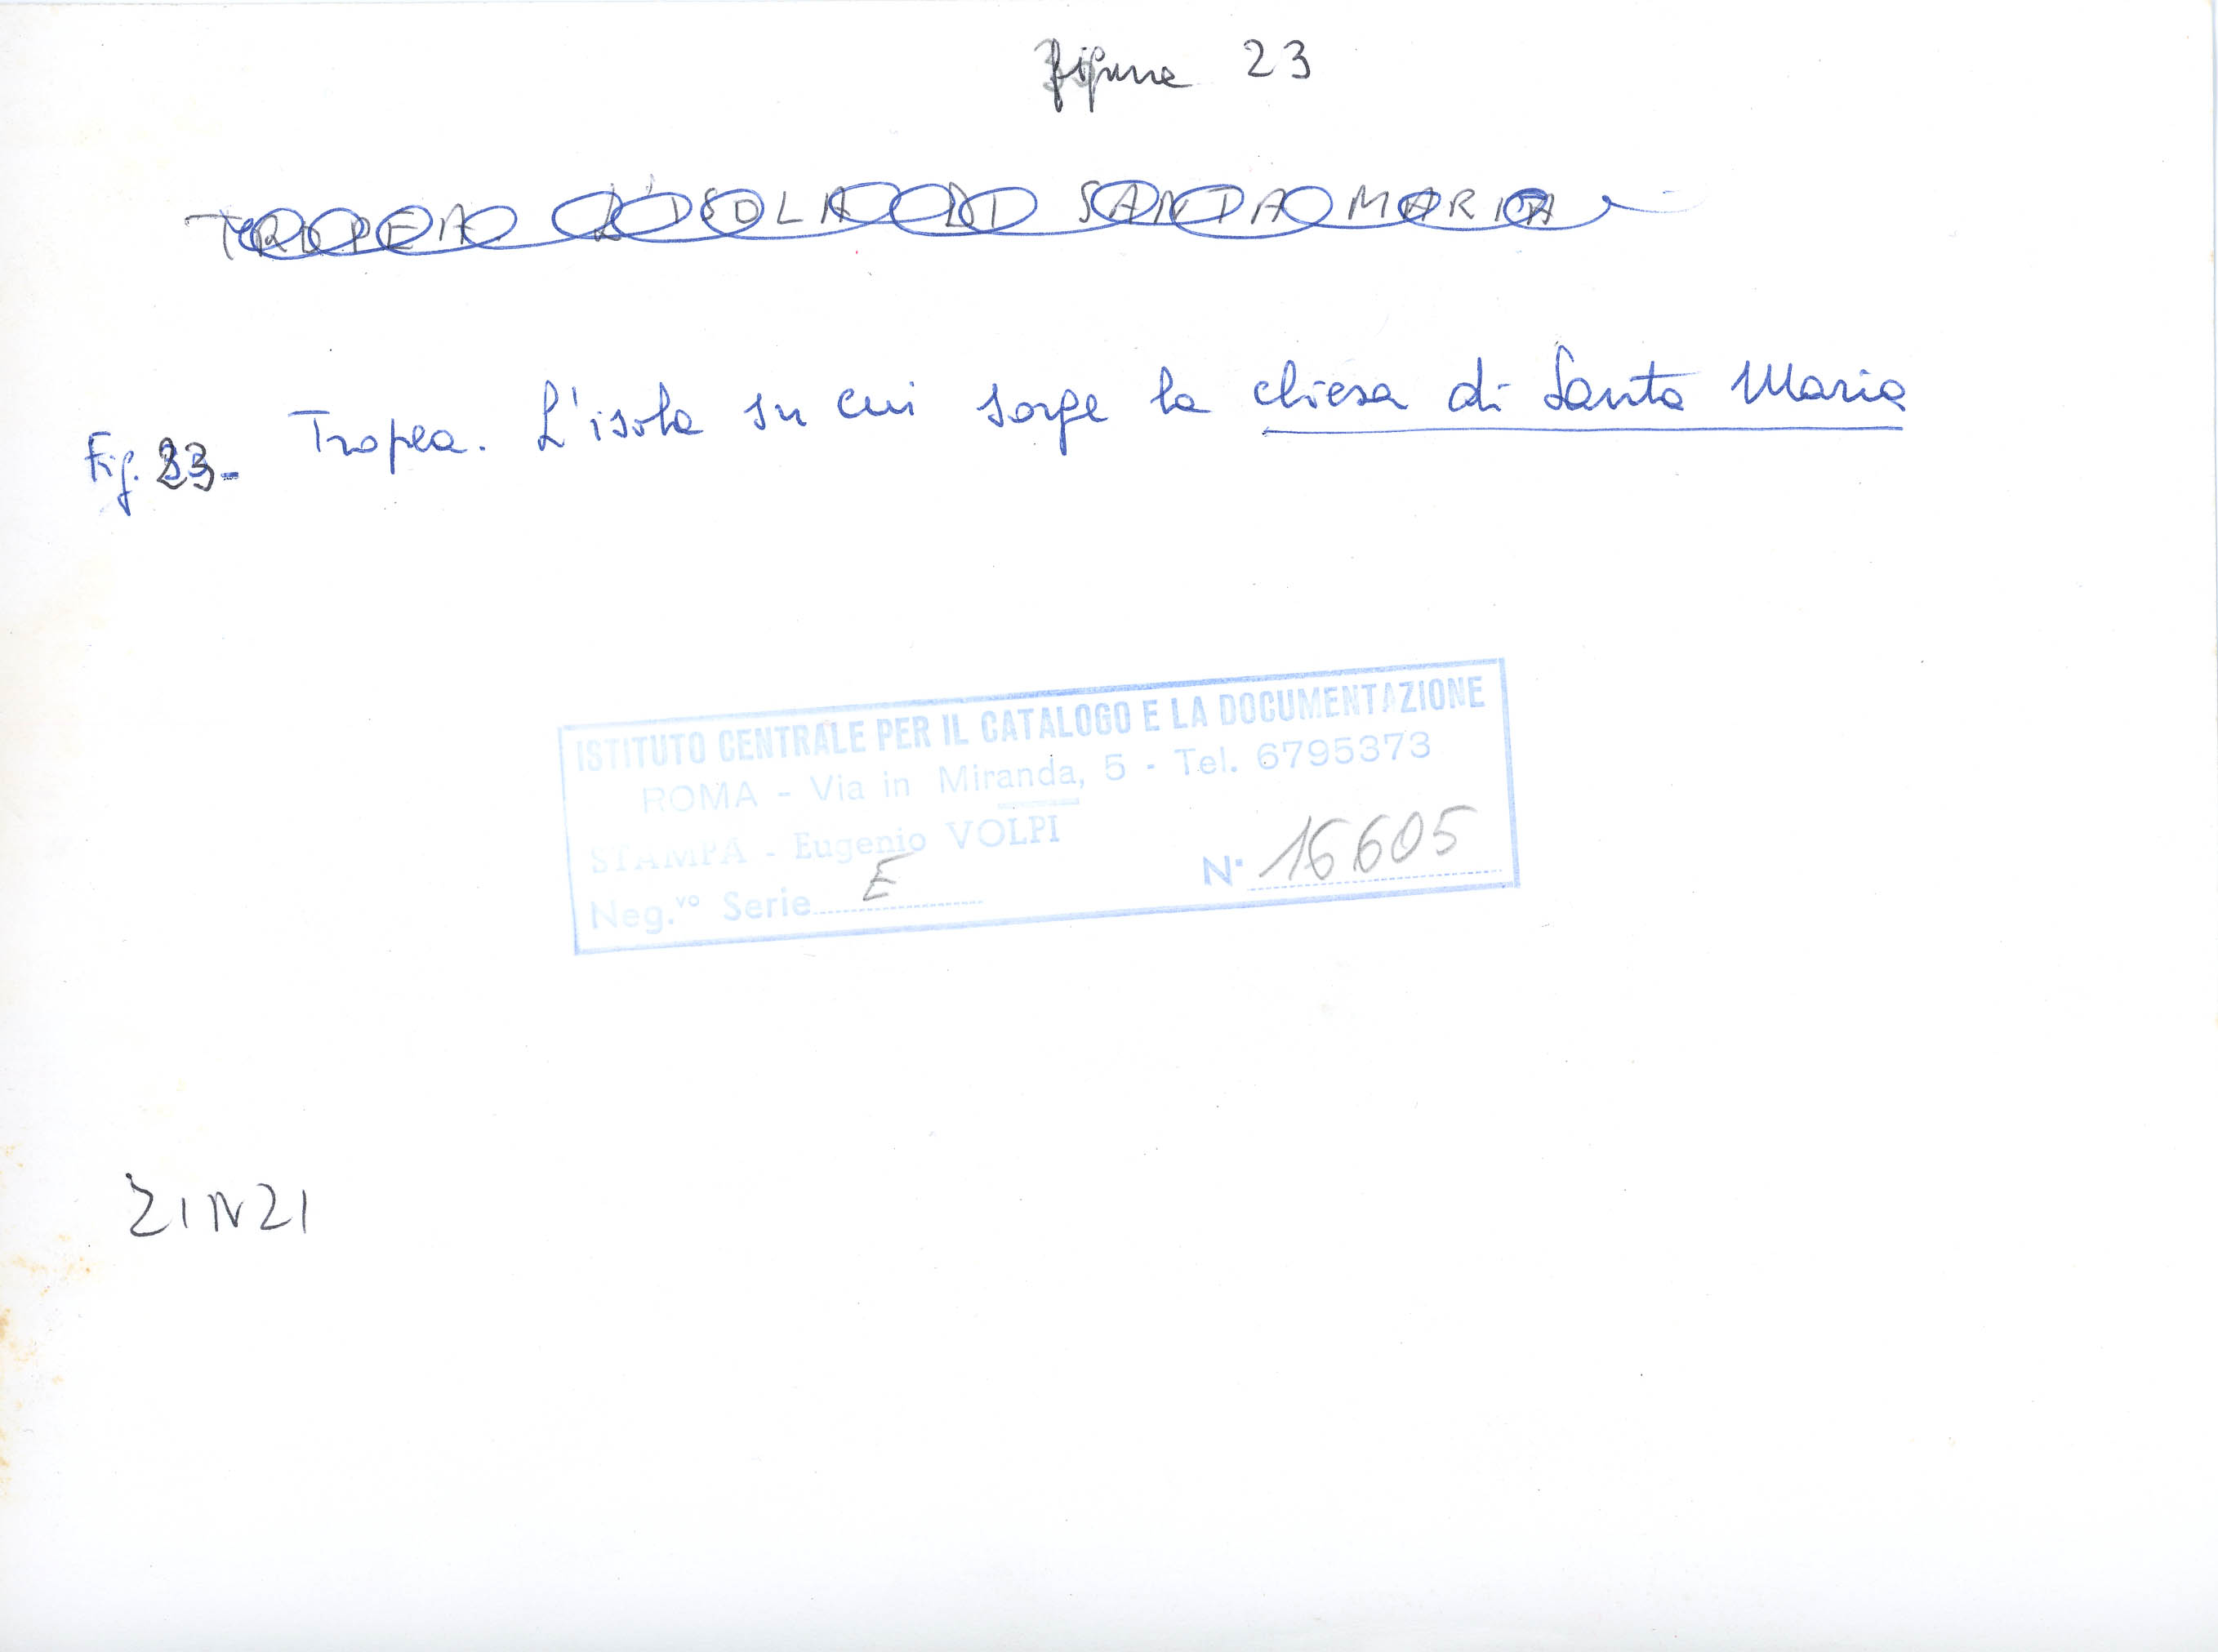 figura 23
TROPEA L'ISOLA DI SANTA MARIA
Fig. 23- Tropea. L'isola su cui sorge la chiesa di Santa Maria
ISTITUTO CENTRALE PER IL CATALOGO E LA DOCUMENTAZIONE
ROMA - Via in Miranda, 5 - Tel. 6795373
STAMPA - Eugenio VOLPI
Neg.vo Serie E N. 16605
ZINZI